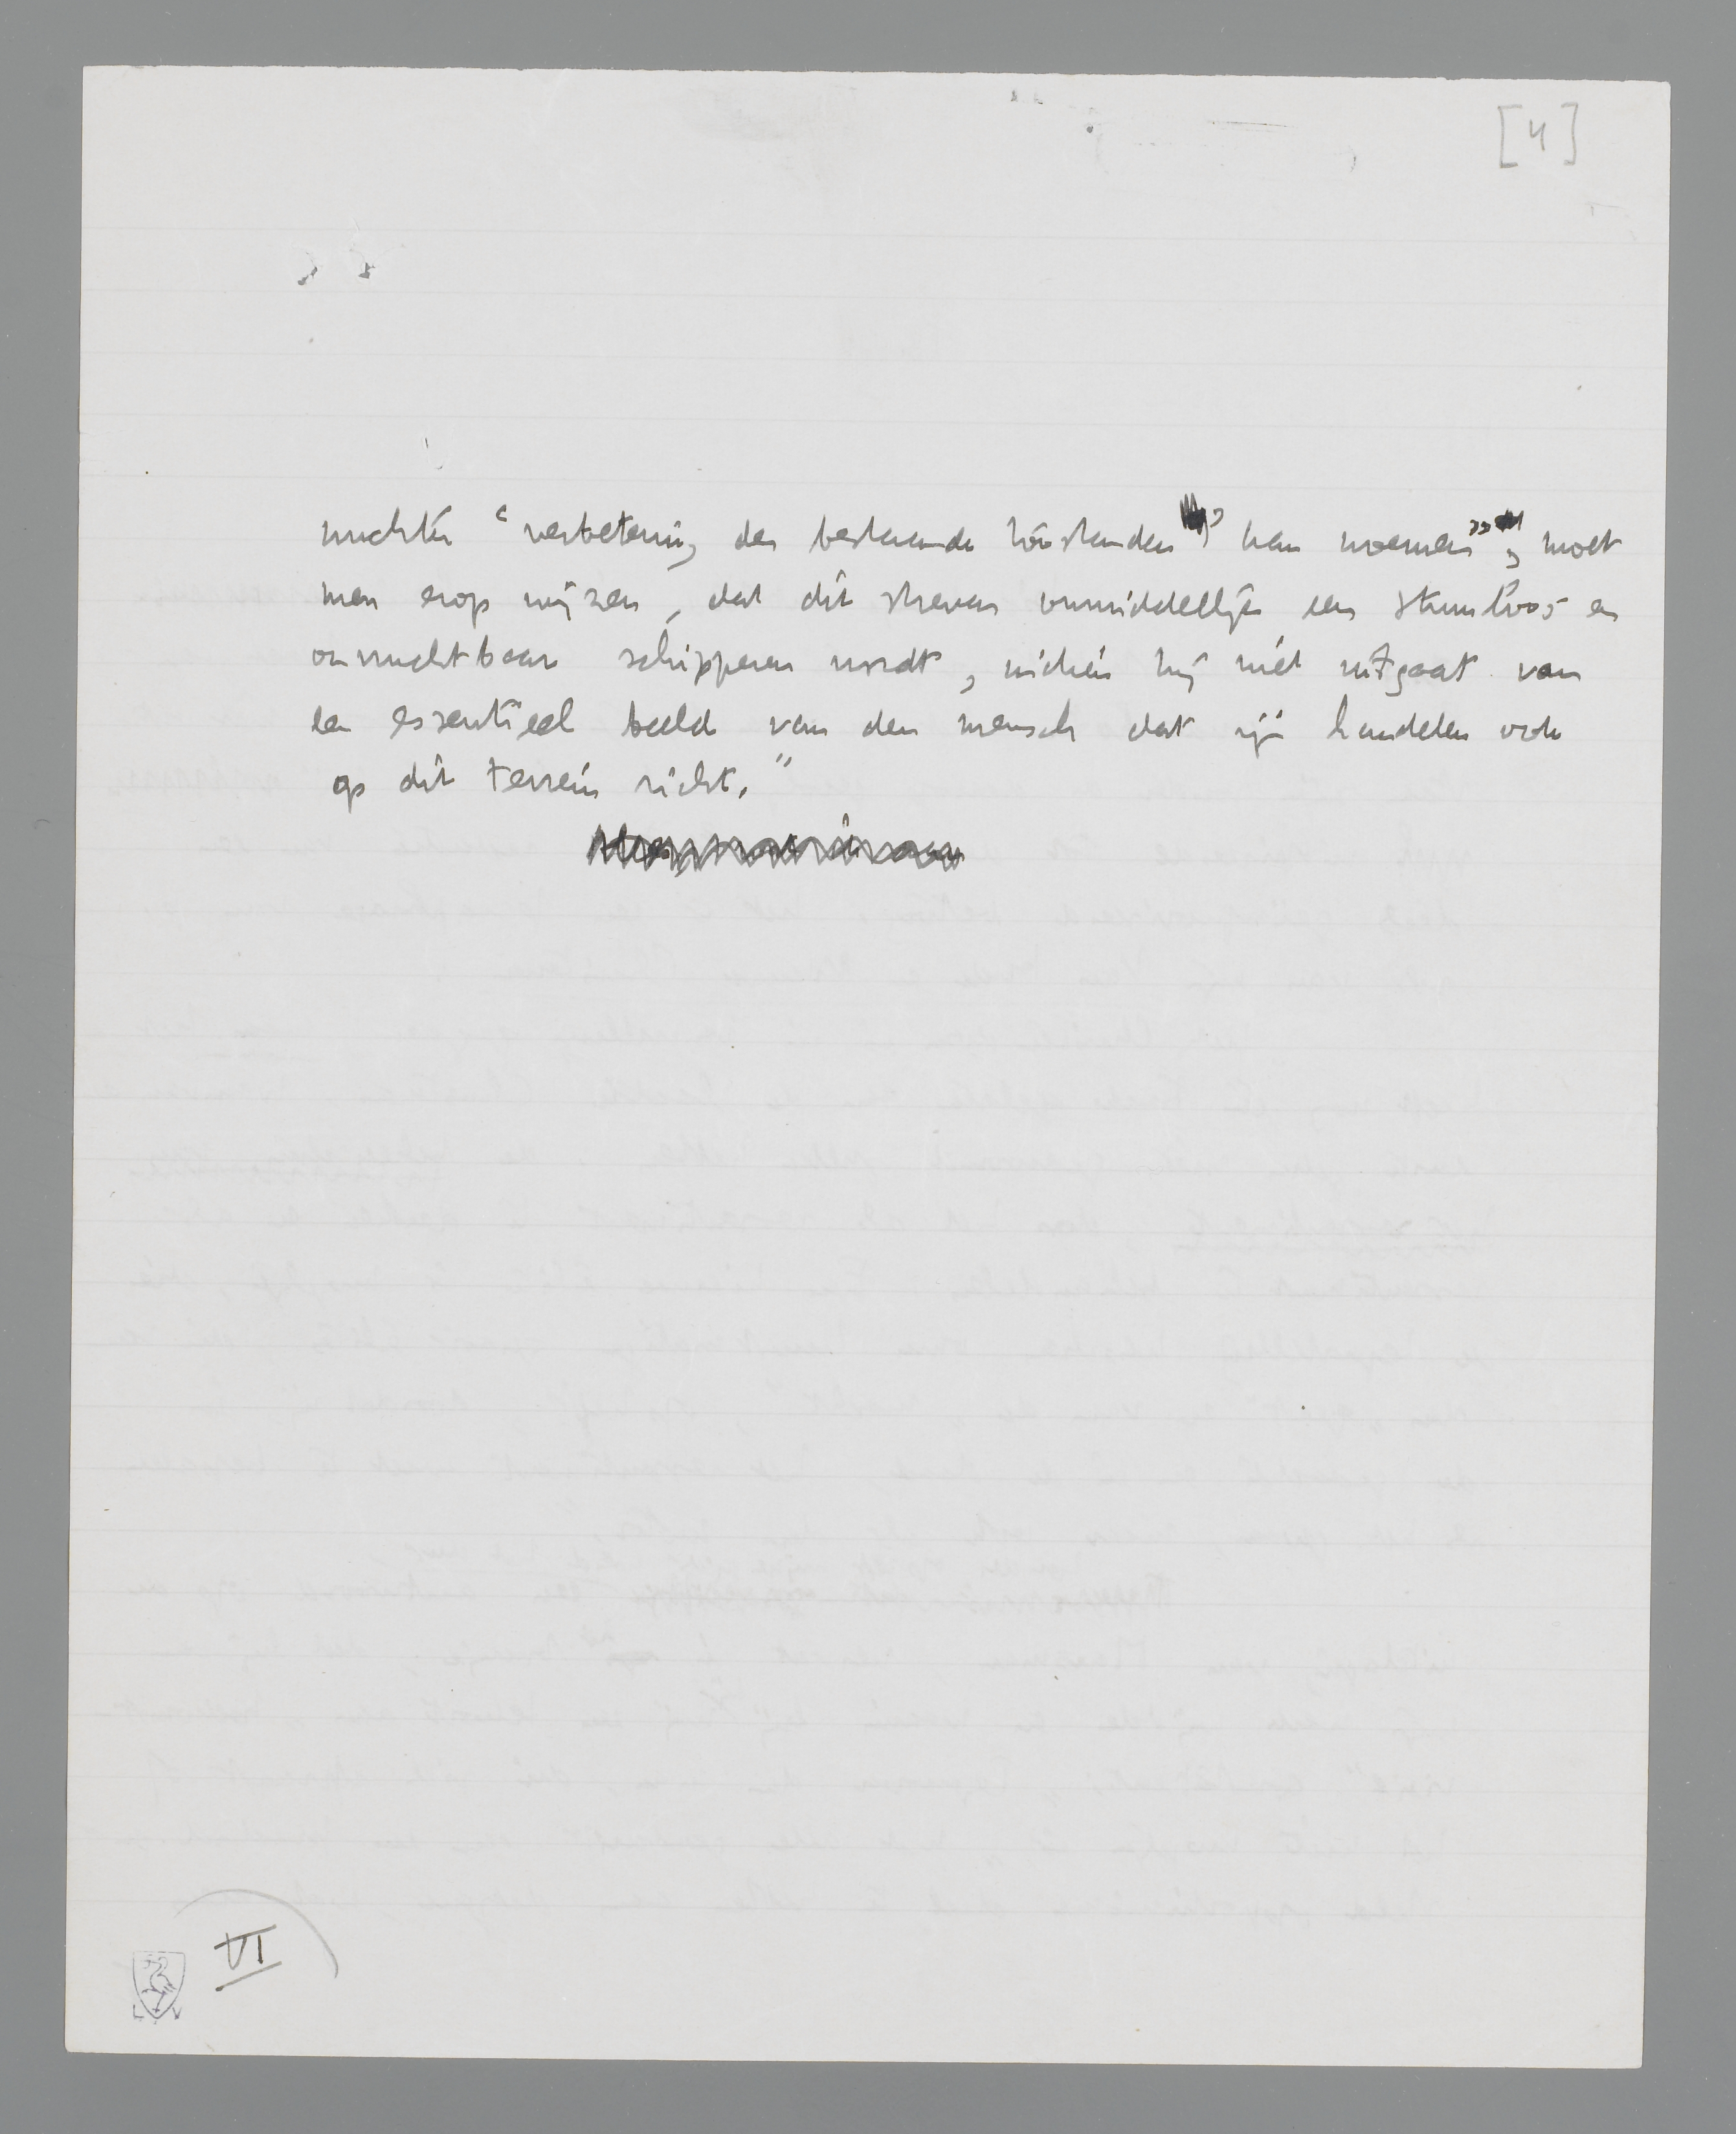 [4]
nuchter ‘verbetering der bestaande toestanden’ kan noemen”, moet
men erop wijzen, dat dit streven onmiddellijk een stuurloos en
onvruchtbaar schipperen wordt, indien hij niet uitgaat van
een essentieel beeld van den mensch dat zijn handelen ook
op dit terrein richt.”
VI